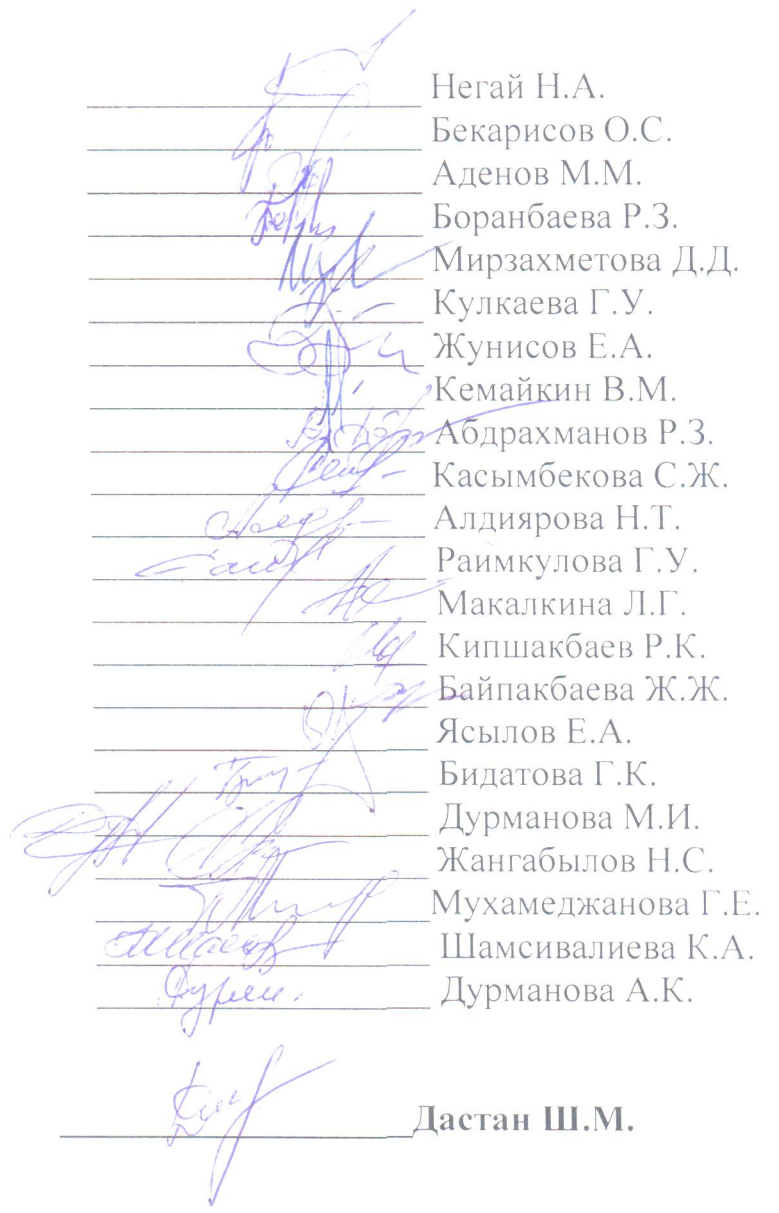 Негай Н.А.
Бекарисов О.С.
Аденов М.М.
Боранбаева Р.З.
Мирзахметова Д.Д.
Кулкаева Г.У.
Жунисов Е.А.
Кемайкин В.М.
Абдрахманов Р.З.
Касымбекова С.Ж.
Алдиярова Н.Т.
Раимкулова Г.У.
Макалкина Л.Г.
Кипшакбаев Р.К.
Байпакбаева Ж.Ж.
Ясылов Е.А.
Бидатова Г.К.
Дурманова М.И.
Жангабылов Н.С.
Мухамеджанова Г.Е.
Шамсивалиева К.А.
Дурманова А.К.
Дастан Ш.М.